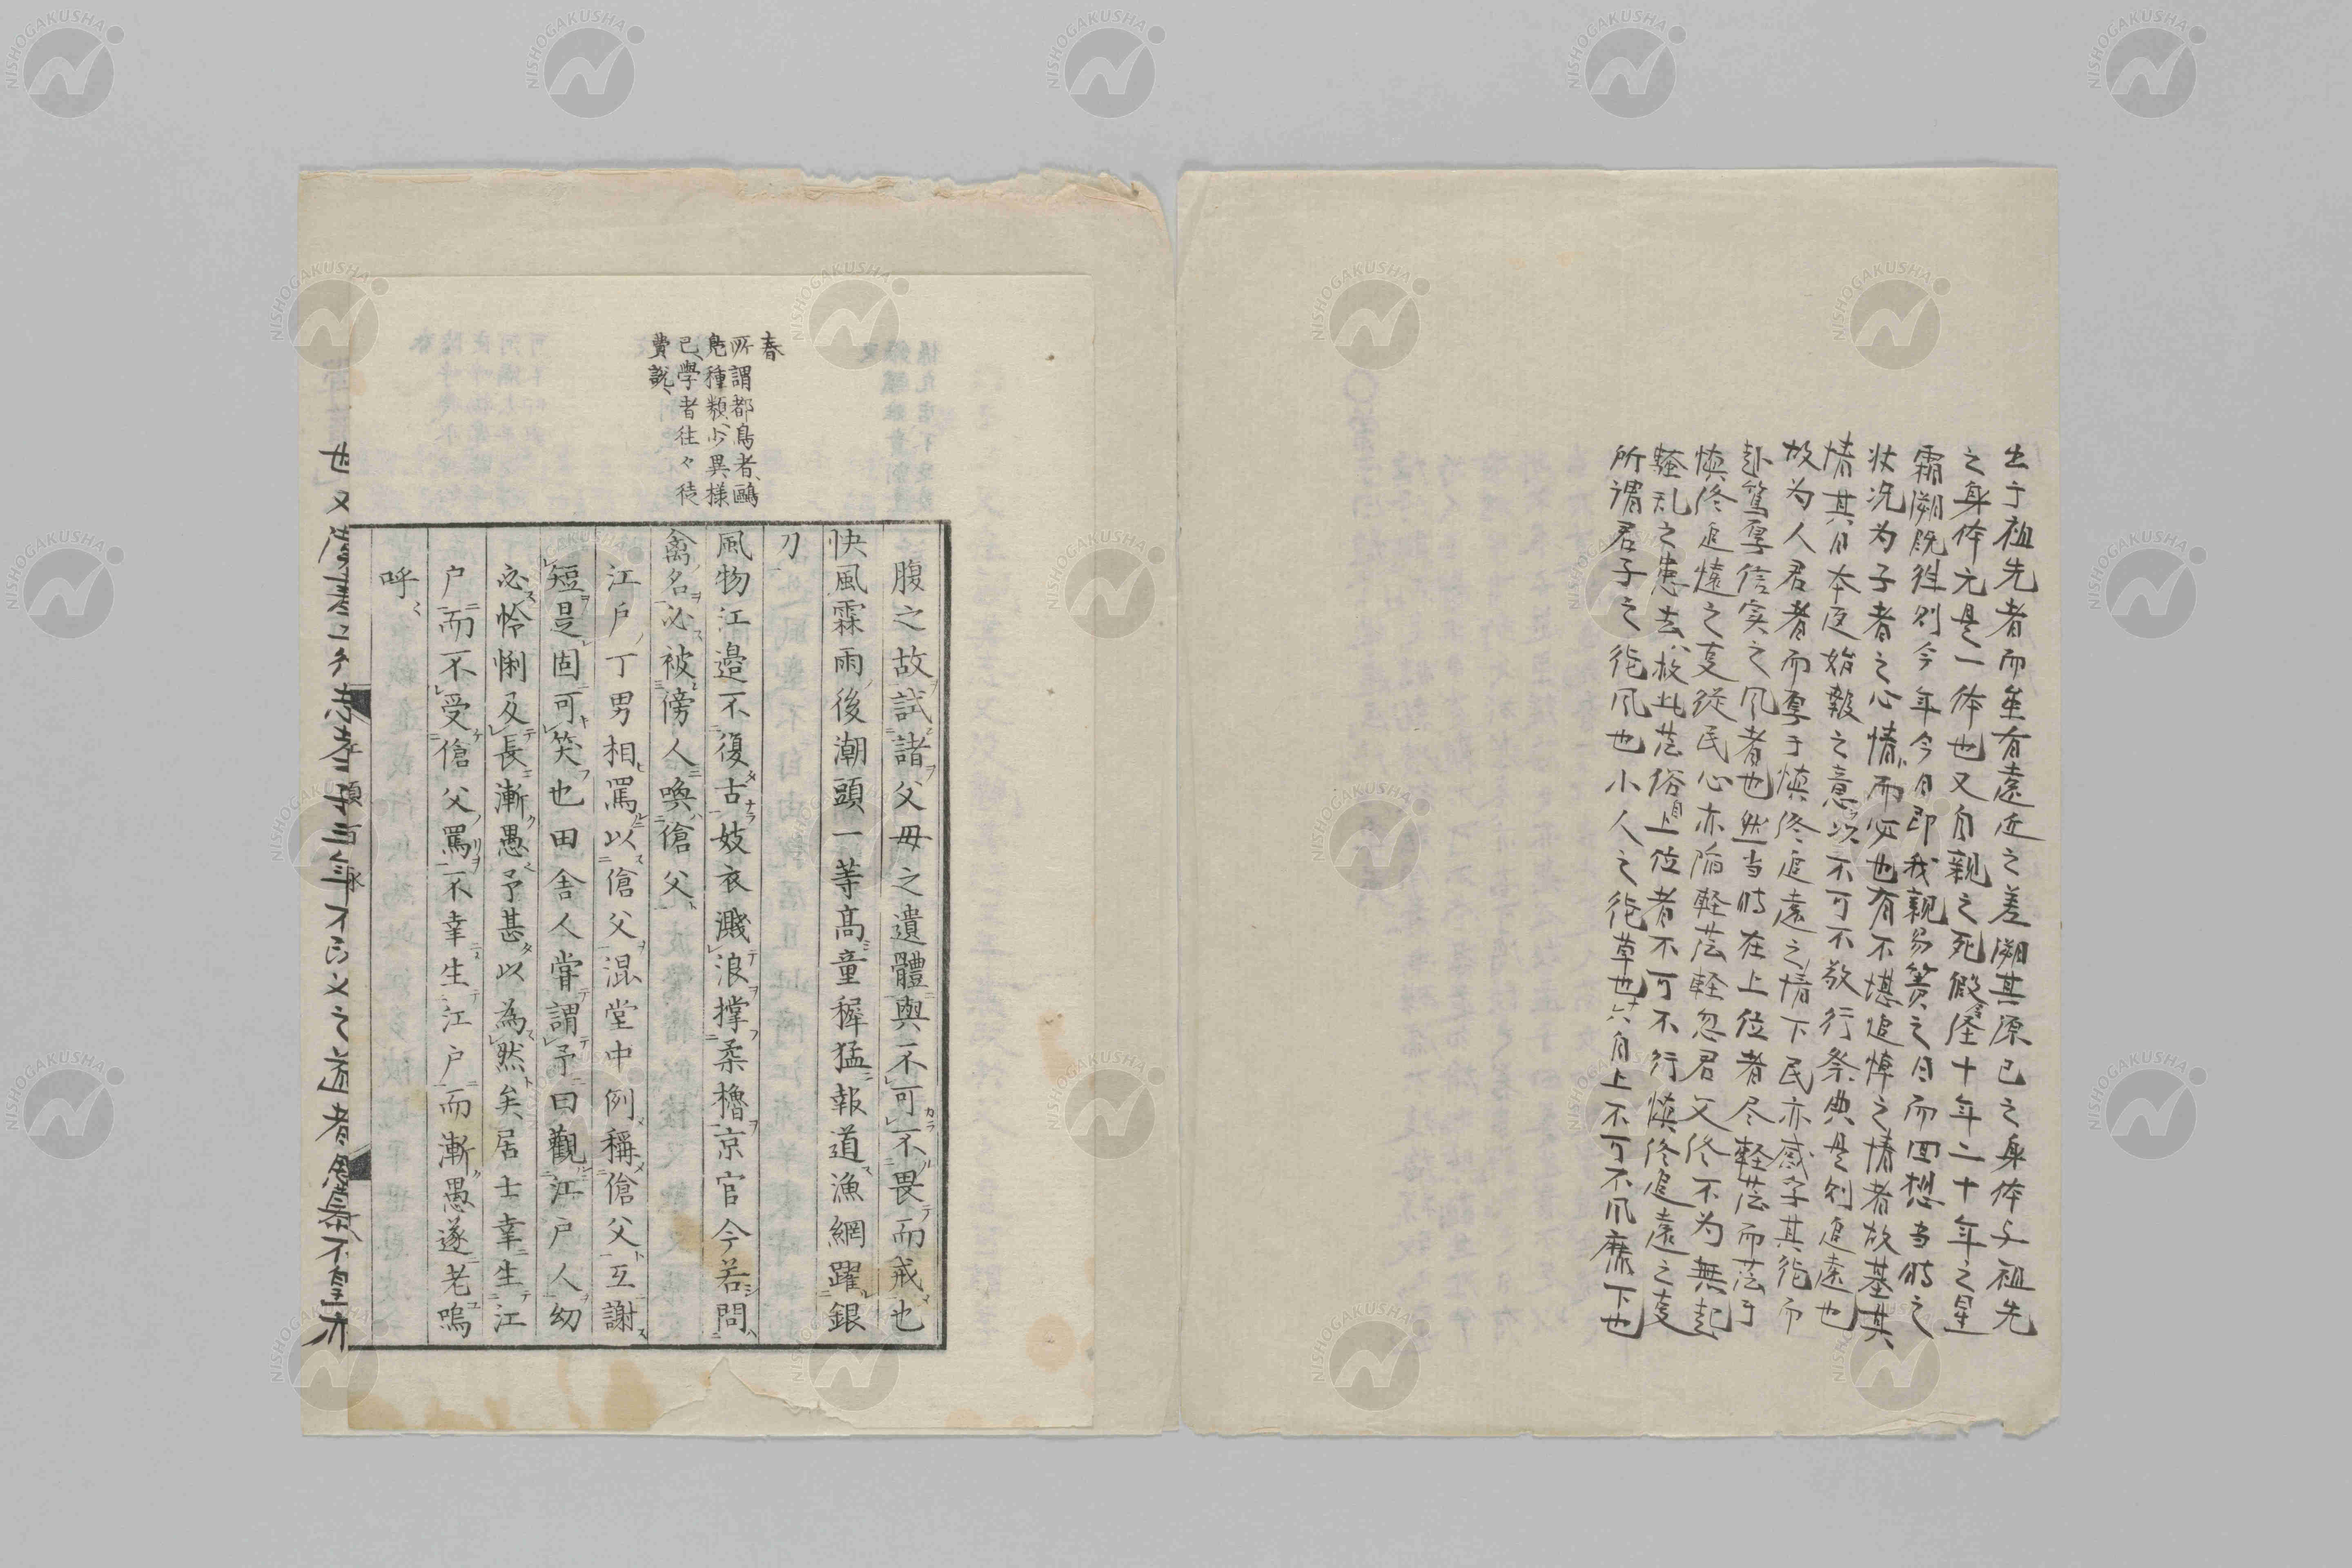 出于祖先者而虽有遠近之差溯其原己之身体与祖先
之身体元是一体也又自親之死假令経十年二十年之星
霜溯既徃則今年今月即我親易簀之月而回想当時之
状况为子者之心情而必也有不堪追悼之情者故基其
情其月本反始報之意以不可不敬行祭典是則追遠也
故为人君者而厚于慎终追遠之情下民亦感孚其徳而
赴篤厚信实之风者也然当時在上位者尽軽薄而薄于
慎终追遠之事従民心亦陥軽薄軽忽君父终不为無起
騒乱之患去救此薄俗上位者不可不行慎终追遠之事
所謂君子之徳风也小人之徳草也六月上不可不风靡下也
春
所謂都鳥者鷗
鳧種類少異樣
已學者往々徒
費說
腹之故試諸父母之遺體與不可不畏而戒也
快風霖雨後潮頭一等高童穉猛報道漁網躍銀
刀
風物江邉不復古妓衣濺浪撑柔櫓京官今若問
禽名必被傍人喚傖父
江戶丁男相罵以傖父混堂中例稱傖父互謝
短是固可笑也田舍人甞謂予曰觀江戶人幼
必怜悧及長漸愚予甚以為然矣居士幸生江
户而不受傖父罵不幸生江户而漸愚遂老嗚
呼
也又
忠孝
三年不改父之道者思慕不皇亦